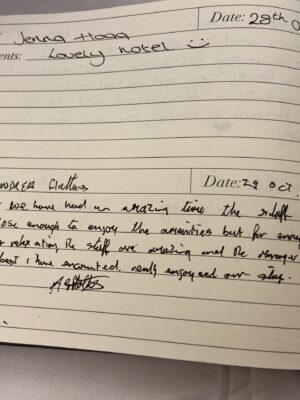 Jenna Hogg Date: 28th O
ents: Lovely hotel
Date: 29 Oct
we have had an amazing time the staff
ose enough to enjoy the amenities but far enou
relaxation the staff are amazing and the manager
best I have encounted. really enjoyed our stay.